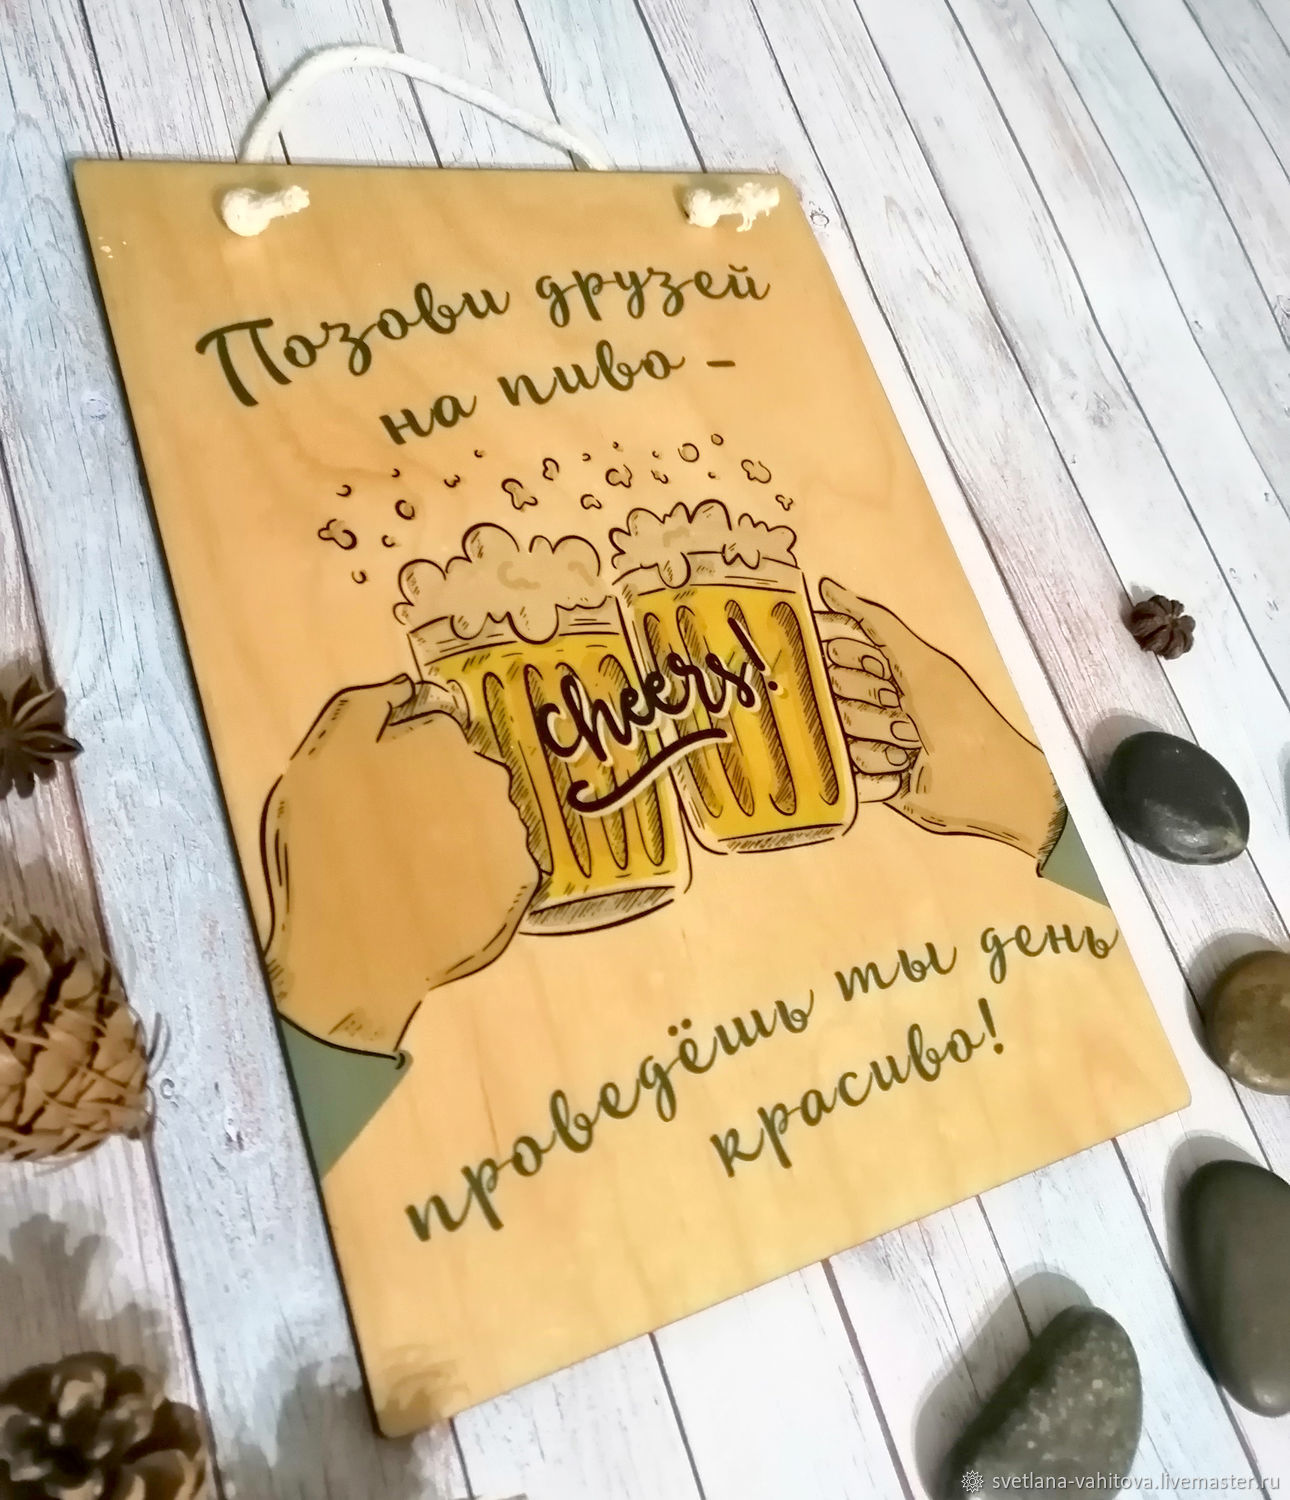 Позови друзей
на пиво -
cheers!
проведёшь ты день
красиво!
svetlana-vahitova.livemaster.ru